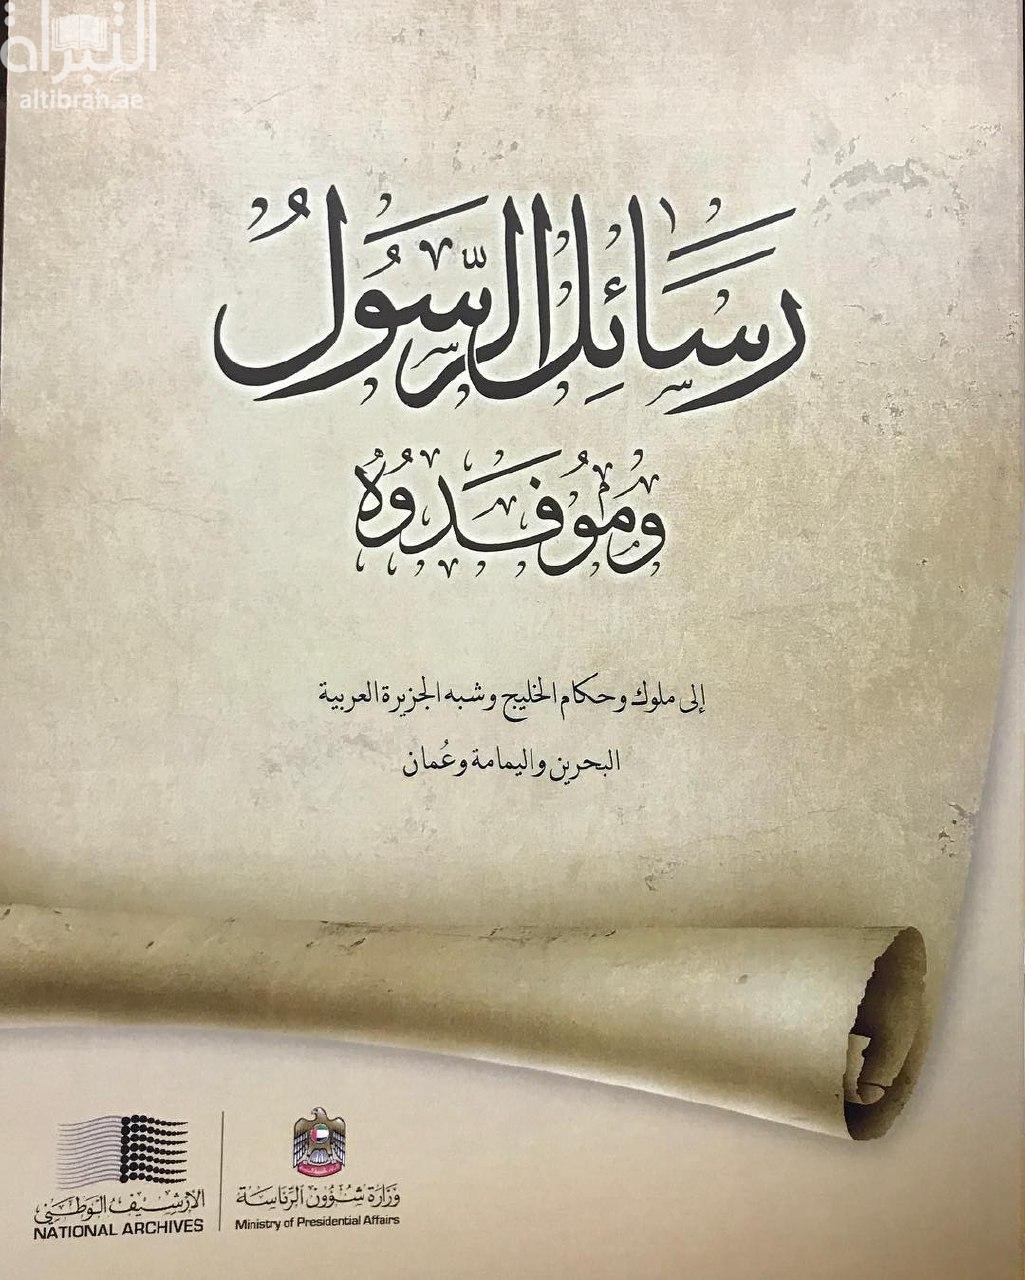 التبراه
altibrah.ae
رسائل الرسول
وموفدوه
إلى ملوك وحكام الخليج وشبه الجزيرة العربية
البحرين واليمامة وعُمان
الأرشيف الوطني
NATIONAL ARCHIVES
وزارة شؤون الرئاسة
Ministry of Presidential Affairs